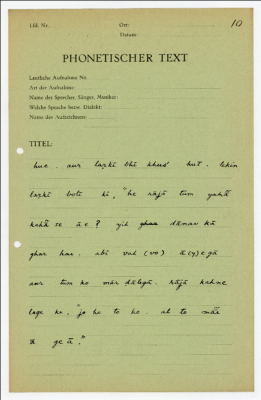 Lfd. Nr.
Ort:
10
Datum:
PHONETISCHER TEXT
Lautliche Aufnahme Nr.
Art der Aufnahme:
Name der Sprecher, Sänger, Musiker:
Welche Sprache bzw. Dialekt:
Name des Aufzeichners:
TITEL:
hue. aur laṛkī bhī khuś hut. lekin
laṛkī bolī ki, "he rājā tum yahā̃
kahā̃ se āe? yih dānav kā
ghar hai. abī vah (vo) ā(y)egā
aur tum ko mār ḍālegā. rājā kahne
lage ki, "jo ho to ho. ab to maĩ
ā gayā."